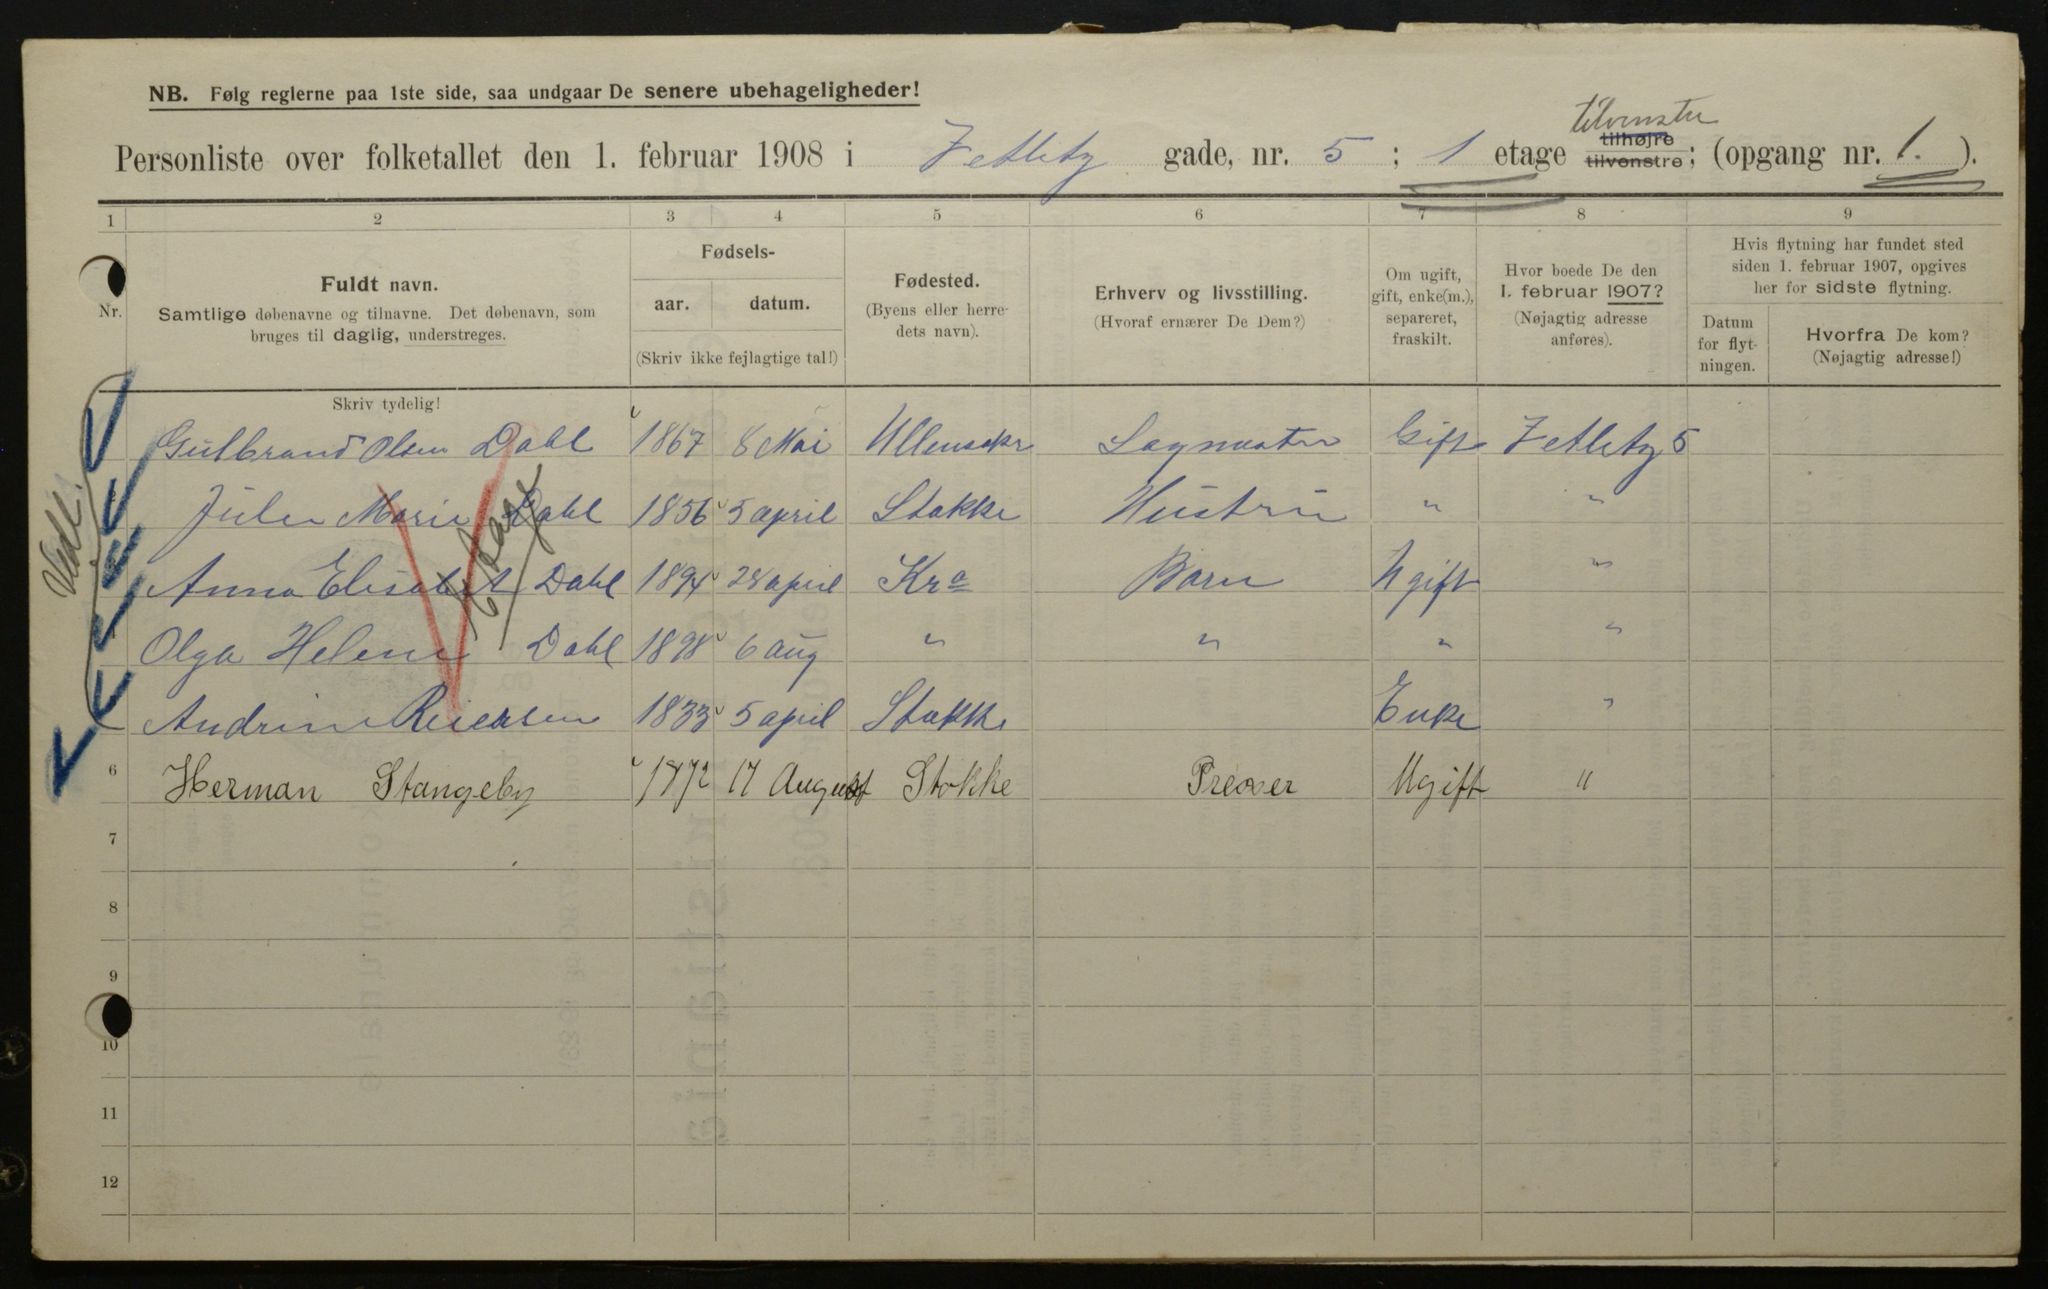 NB. Følg reglerne paa 1ste side, saa undgaar De senere ubehageligheder!
tilvenstre
Personliste over folketallet den 1. februar 1908 i Zetlitz gade, nr. 5; 1 etage tilhøjre tilvenstre; (opgang nr. 1.).
1 2 3 4 5 6 7 8 9
Nr.
Fuldt navn.
Samtlige døbenavne og tilnavne. Det døbenavn, som
bruges til daglig, understreges.
Skriv tydelig!
Fødsels-
aar. datum.
(Skriv ikke fejlagtige tal!)
Fødested.
(Byens eller herre-
dets navn).
Erhverv og livsstilling.
(Hvoraf ernærer De Dem?)
Om ugift,
gift, enke(m.),
separeret,
fraskilt.
Hvor boede De den
1. februar 1907?
(Nøjagtig adresse
anføres).
Hvis flytning har fundet sted
siden 1. februar 1907, opgives
her for sidste flytning.
Datum
for flyt-
ningen.
Hvorfra De kom?
(Nøjagtig adresse!)
Gulbrand Olsen Dahl 1867 8 Mai Ullensakr Gift Zetlitz 5
Julie Marie Dahl 1856 5 april Stokke Hustru " "
Anna Elisabet Dahl 1894 28 april Kra Barn Ugift "
Olga Helene Dahl 1898 6 aug " " " "
Andrine Reiersen 1833 5 april Stokke Enke "
6 Herman Stangeby 1872 17 August Stokke Presser Ugift "
7
8
9
10
11
12